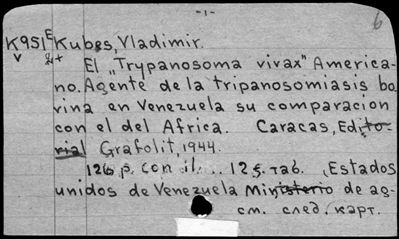 -1-
6
K951 E Kubes, Vladimir.
v &+
El „Trypanosoma vivax" America-
no. Agente de la tripanosomiasis bo
vina en Venezuela su comparacion
con el del Africa. Caracas, Edito-
rial Grafolit, 1944.
126 p. con il. .. 12 5. таб. (Estados
unidos de Venezuela Ministerio de ag-
см. след. карт.